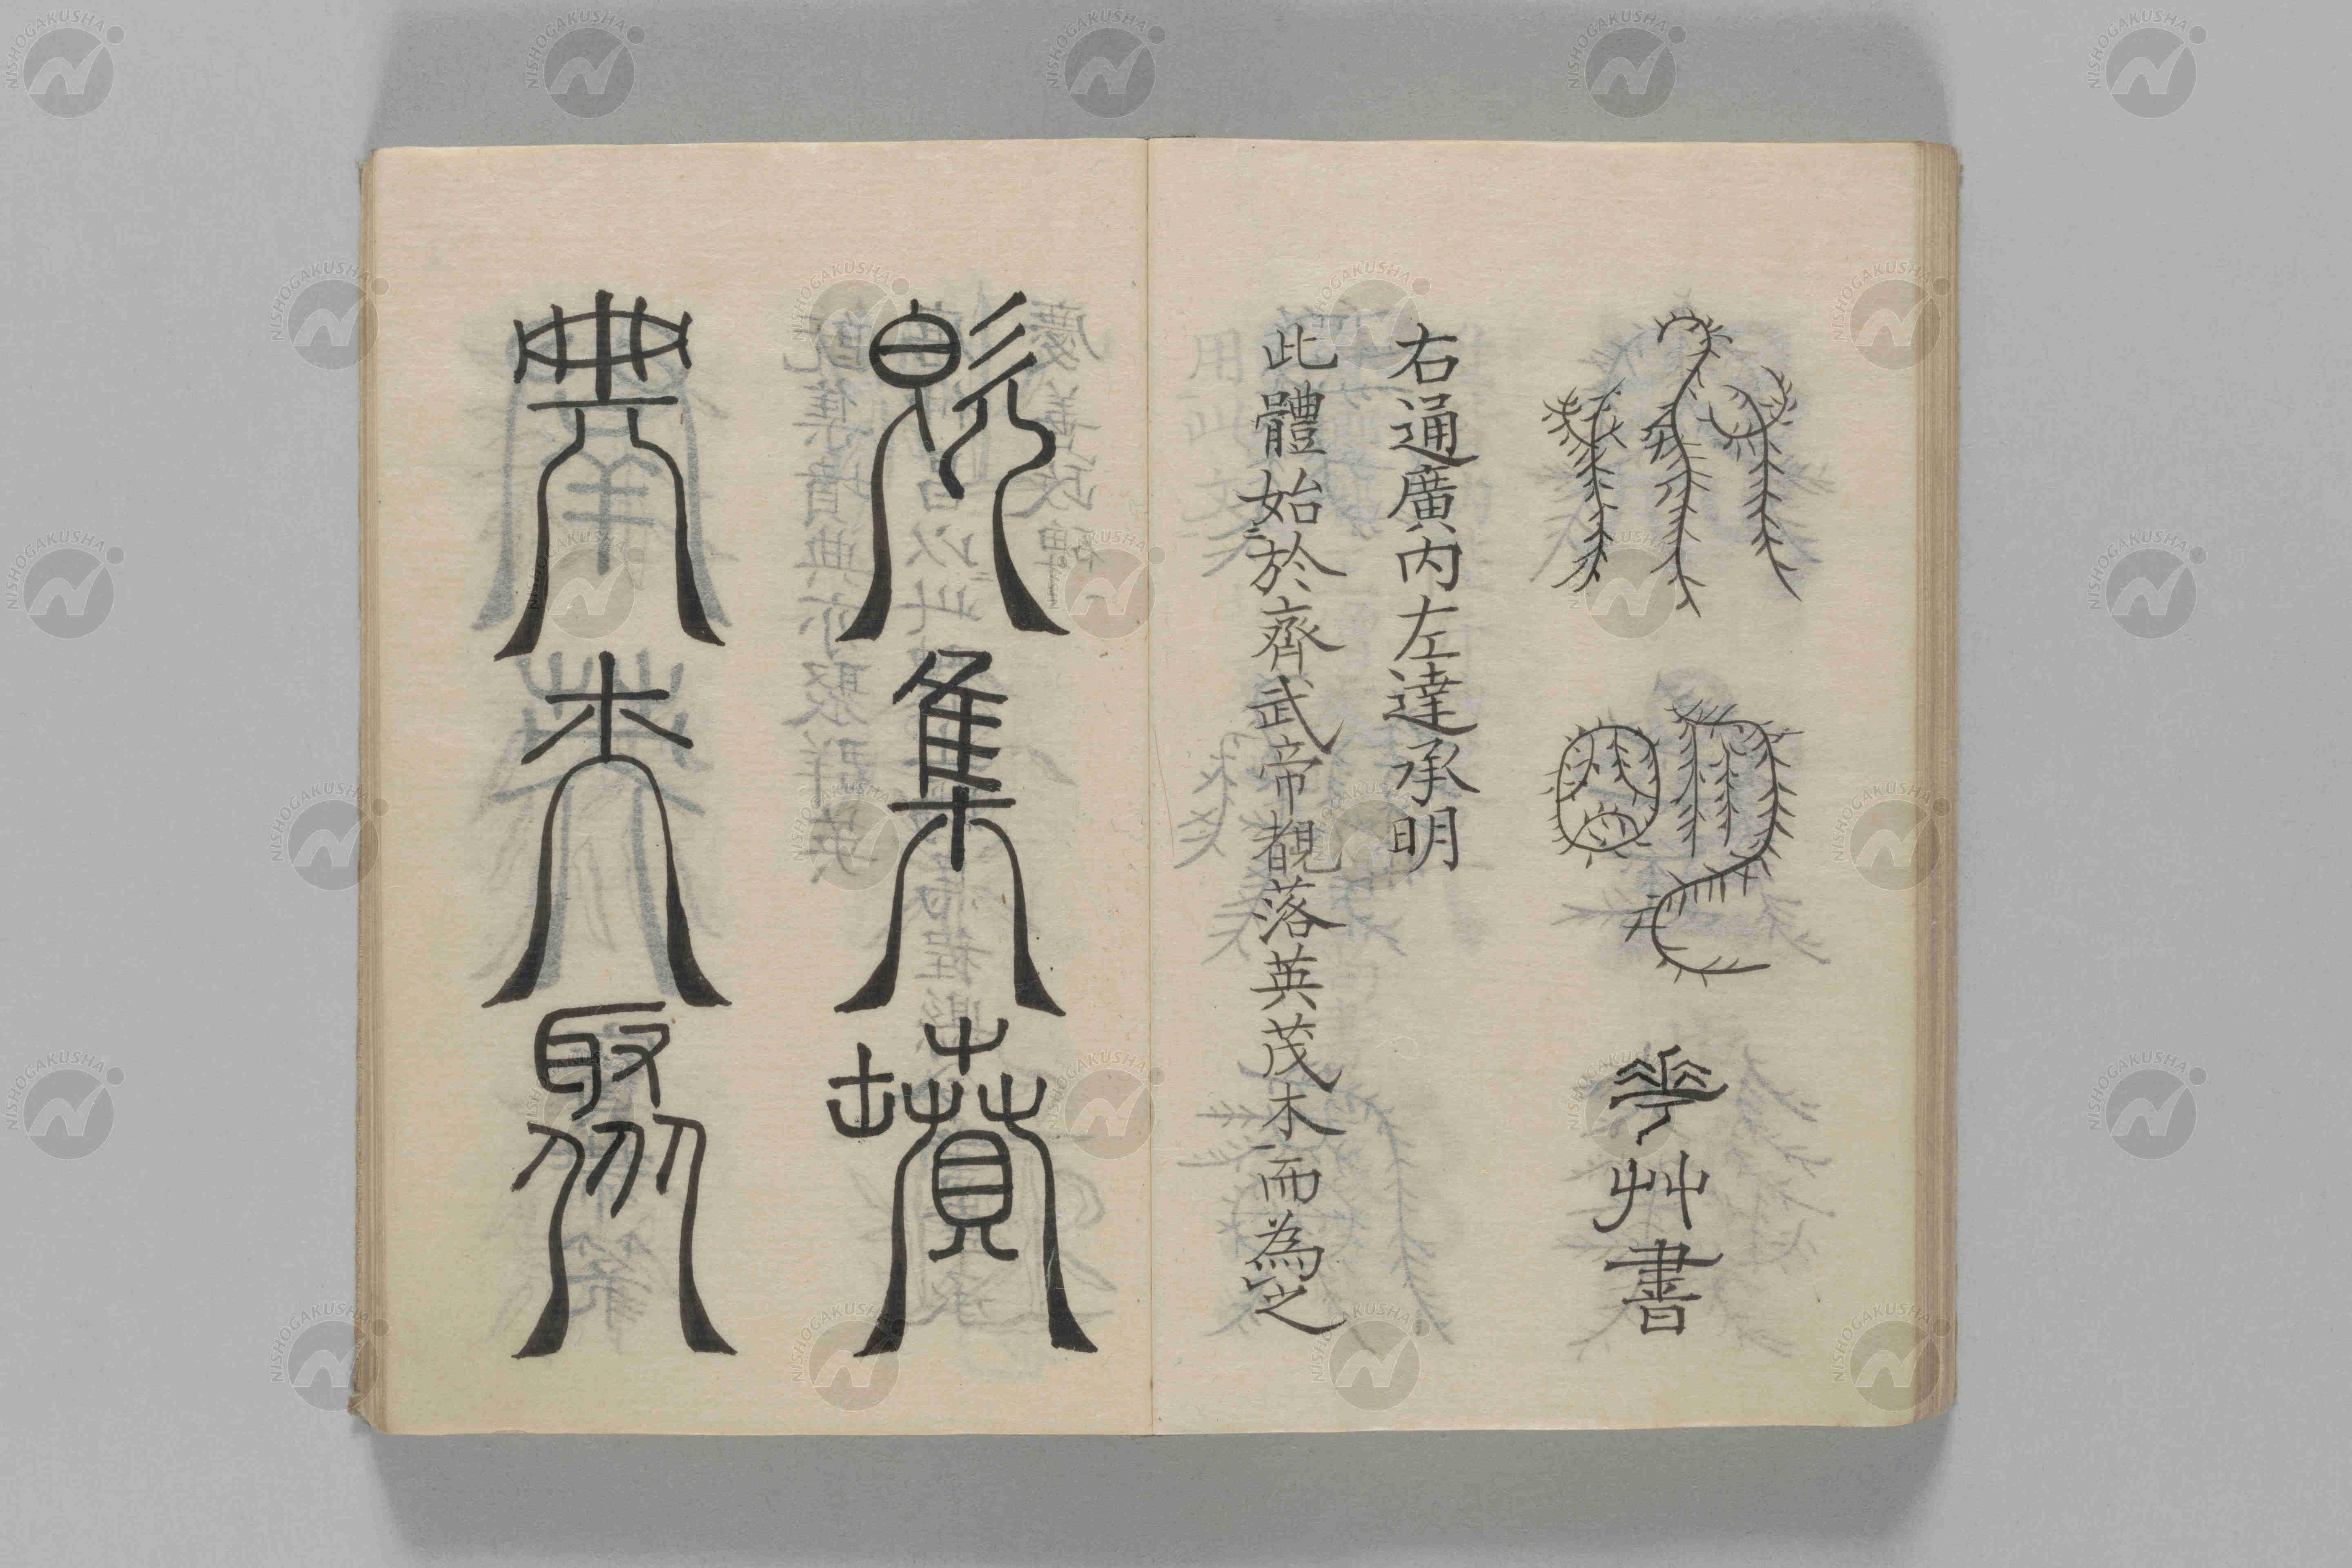 承明
華艸書
右通廣内左達承明
此體始於齊武帝覩落英茂木而為之
既集墳
典亦聚
NISHOGAKUSHA